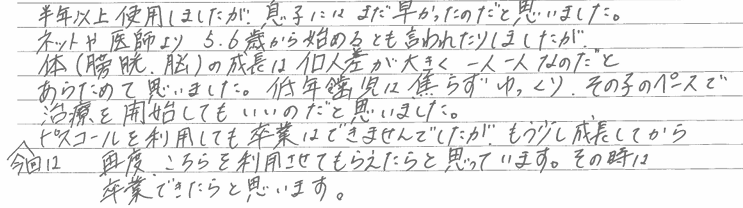 半年以上使用しましたが、息子にはまだ早かったのだと思いました。
ネットや医師より 5.6歳から始めるとも言われたりしましたが、
体(膀胱、脳)の成長は個人差が大きく 一人一人なのだと
あらためて思いました。低年齢児は焦らずゆっくり、その子のペースで
治療を開始してもいいのだと思いました。
ピスコールを利用しても卒業はできませんでしたが、もう少し成長してから
今回は 再度、こちらを利用させてもらえたらと思っています。その時は
卒業できたらと思います。